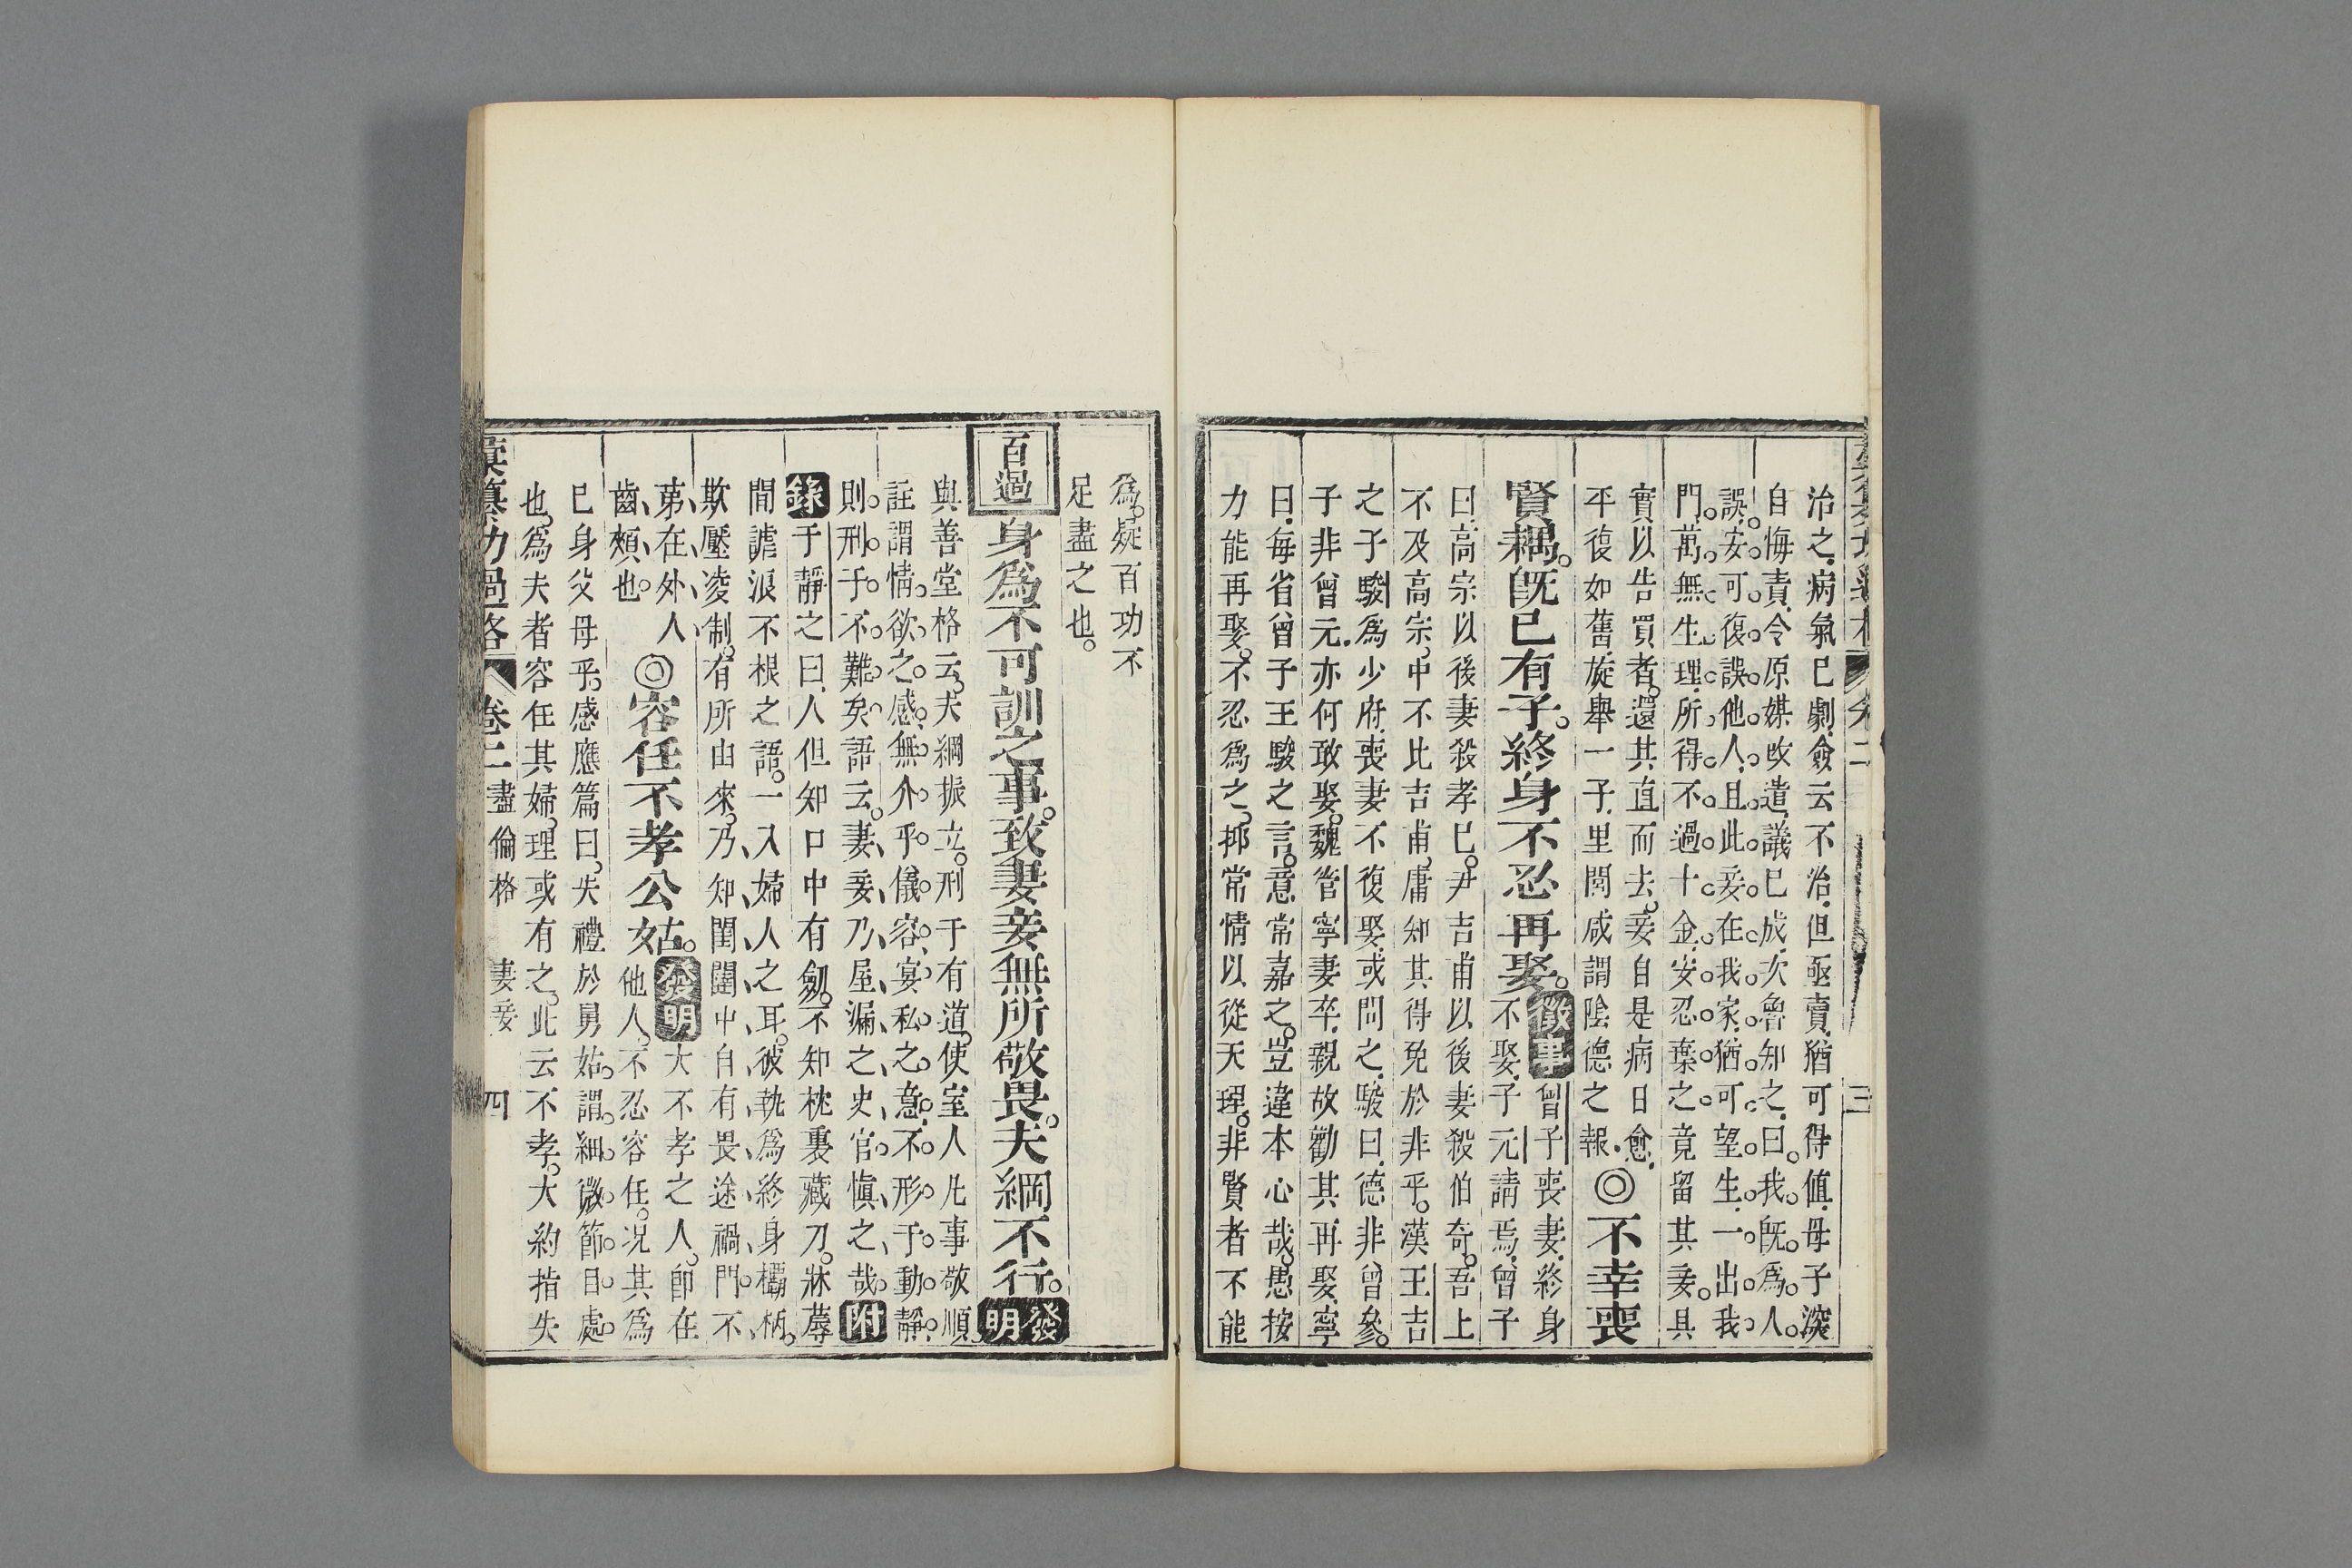 治之病氣已劇僉云不治但亟賣猶可得値母子深
自悔責令原媒改遣議已成次魯知之曰我既爲人
誤安可復誤他人且此妾在我家猶可望生一出我
門萬無生理所得不過十金安忍棄之竟留其妾具
實以告買者還其直而去妾自是病日愈
平復如舊旋舉一子里閭咸謂陰德之報◎不幸喪
賢耦既已有子終身不忍再娶徵事曾子喪妻終身
不娶子元請焉曾子
曰高宗以後妻殺孝已尹吉甫以後妻殺伯奇吾上
不及高宗中不比吉甫庸知其得免於非乎漢王吉
之子駿爲少府喪妻不復娶或問之駿曰德非曾參
子非曾元亦何敢娶魏管寧妻卒親故勸其再娶寧
曰每省曾子王駿之言意常嘉之豈違本心哉愚按
力能再娶不忍爲之抑常情以從天理非賢者不能
卷二
三
爲疑百功不
足盡之也
百過身爲不可訓之事致妻妾無所敬畏夫綱不行發明
與善堂格云夫綱振立刑于有道使室人凡事敬順
註謂情欲之感無介乎儀容宴私之意不形于動靜
則刑于不難矣語云妻妾乃屋漏之史官愼之哉附
錄于靜之曰人但知口中有劒不知枕裏藏刀牀蓐
間謔浪不根之語一入婦人之耳彼執爲終身欛柄
欺壓凌制有所由來乃知閨闥中自有畏途禍門不
第在外人◎容任不孝公姑發明大不孝之人卽在
齒頰也他人不忍容任况其爲
已身父母乎感應篇曰失禮於舅姑謂細微節目處
也爲夫者容任其婦理或有之此云不孝大約指失
彙纂功過格 卷二 盡倫格 妻妾 四